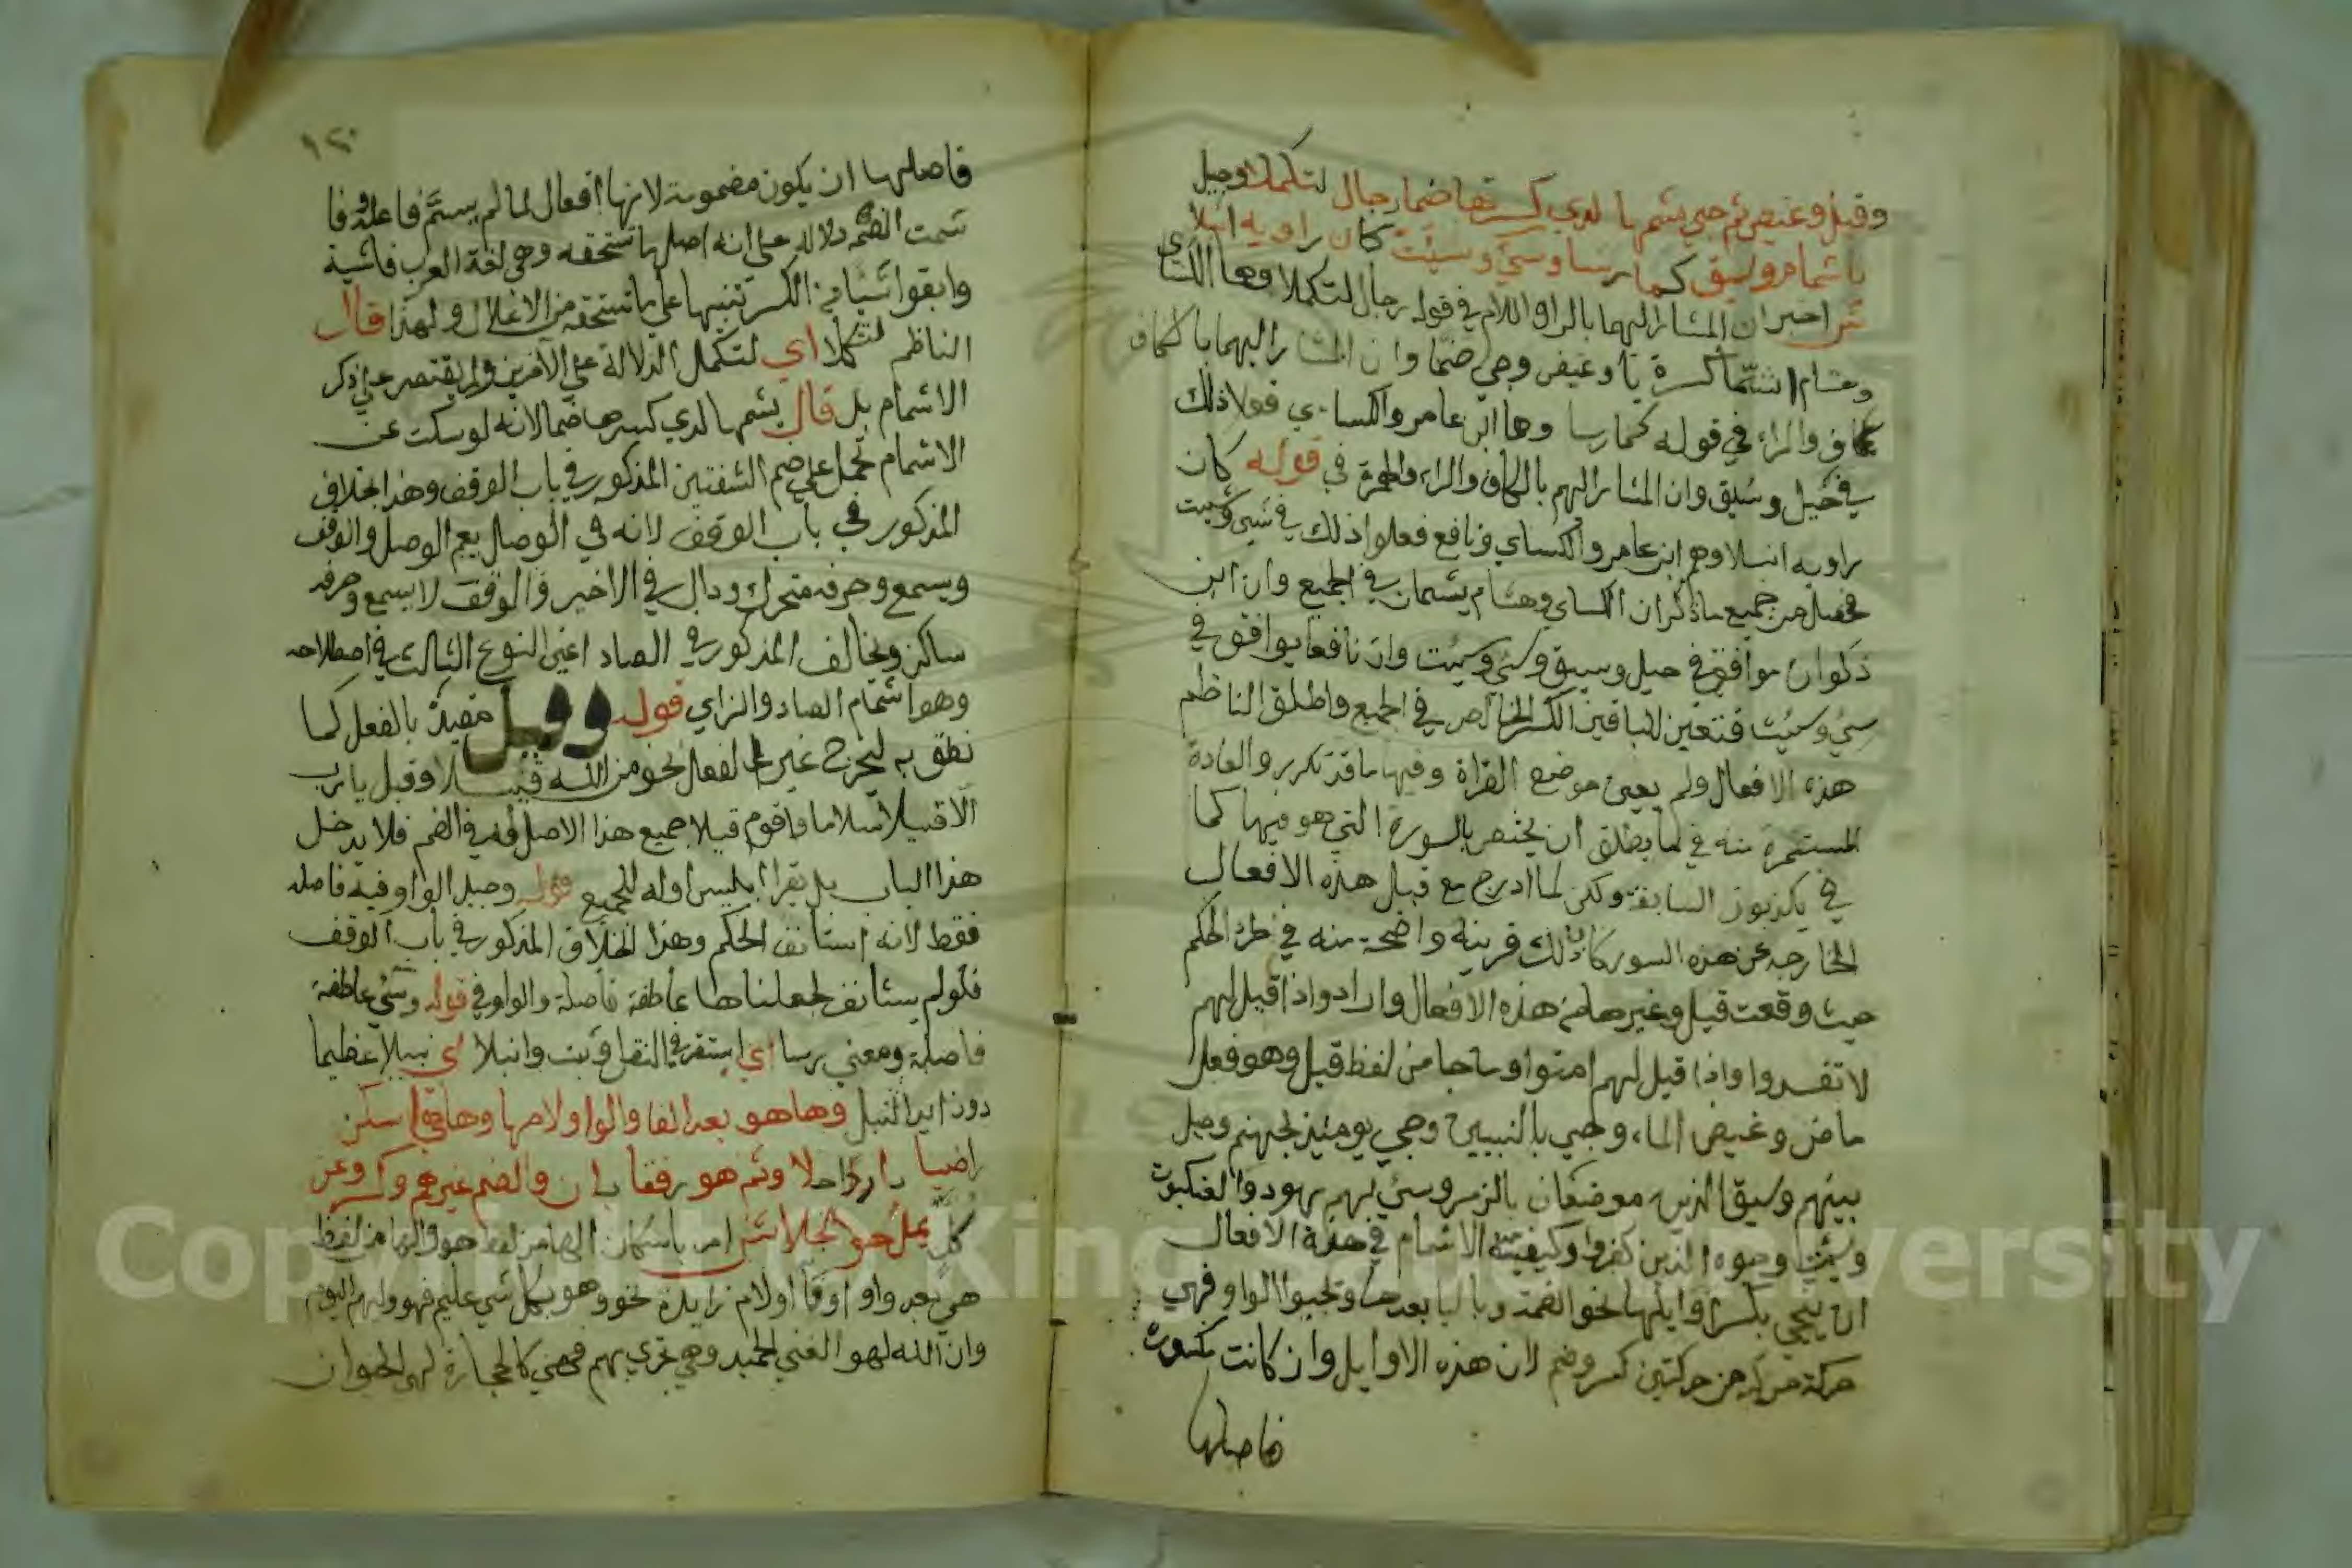 وقيل وغيض ثم جيء يشمها لدي كسرتها ضما رجال لتكملا وحيل
باشمام وسيق كما رسا وسيء وسيئت كان راويه انبلا
ش اخبر ان المشار اليهما بالراء واللام في قوله رجال لتكملا وهما الكسائي
وهشام اشما كسرة يا وغيض وجي ضما وان المشار اليهما بالكاف
كاف والراء في قوله كما رسا وهما ابن عامر والكساي فعلا ذلك
في حيل وسيق وان المشار اليهم بالكاف والراء والهمزة في قوله كان
راويه انبلا وهم ابن عامر والكساي ونافع فعلوا ذلك في سيء وسيئت
فحصل من جميع ماذكر ان الكساي وهشام يشمان في الجميع وان ابن
ذكوان موافق في حيل وسيق وسيء وسيئت وان نافعا يوافق في
سيء وسيئت فتعين للباقين الكسر الخالص في الجميع واطلق الناظم
هذه الافعال ولم يعين موضع القراة وفيها ما قد تكرر والعادة
المستمرة منه في ما يطلق ان يختص بالسورة التي هو فيها كما
في يكذبون السابقة ولكن لما ادرج مع قيل هذه الافعال
الخارجه عن هذه السور كان ذلك قرينة واضحة منه في طرد الحكم
حيث وقعت قيل وغيرها من هذه الافعال واراد واذا قيل لهم
لا تفسدوا واذا قيل لهم امنوا وما جا من لفظ قيل وهو فعل
ماض وغيض الماء وجيء بالنبيين وجيء يومئذ بجهنم وحيل
بينهم وسيق الذين موضعان بالزمر وسيء بهم بهود والعنكبوت
وسيئت وجوه الذين كفروا وكيفية الاشمام في هذه الافعال
ان ينحي بكسر اوايلها نحو الضمة وباليا بعدها نحو الواو فهي
حركة مركبة من حركتين كسر وضم لان هذه الاوايل وان كانت مكسورة
فاصلها
١٢٠
فاصلها ان يكون مضمومة لانها افعال لما لم يسم فاعله وفا
شمت الضم دلالة على انه اصل ما تستحقه وهي لغة العرب فاشية
وابقوا شيا من الكسر تنبيها على ما تستحقه من الاعلال ولهذا قال
الناظم لتكملا اي لتكمل الدلالة على الامرين ولم يقتصر على ذكر
الاشمام بل قال يشمها لدي كسرها ضما لانه لو سكت عن
الاشمام لحمل على ضم الشفتين المذكور في باب الوقف وهذا بخلاف
المذكور في باب الوقف لانه في الوصل يعم الوصل والوقف
ويسمع وحرفه متحرك وذاك في الاخير والوقف لا يسمع وحرفه
ساكن ويخالف المذكور في الصاد اعني النوع الثالث في اصطلاحه
وهو اشمام الصاد والزاي قوله وقيل مقيد بالفعل كما
نطق به ليخرج غير الفعل نحو من الله قيلا وقيله يا رب
الا قيلا سلاما واقوم قيلا جميع هذا لا اصل له في الضم فلا يدخل
هذا الباب بل يقرا بكسر اوله للجميع قوله وحيل الواو فيه فاصله
فقط لانه استانف الحكم وهذا بخلاف المذكور في باب الوقف
فلو لم يستانف لجعلناها عاطفة فاصلة والواو في قوله وسيء عاطفة
فاصلة ومعني رسا اي استقر في النقل وثبت وانبلا اي نبيلا عظيما
دون النبل وها هو بعد الفا والواو ولامها وها هي اسكن
راضيا باردا حلا وثم هو رفقا بان والضم غيرهم وكسر وعن
كل يمل هو انجلا ش امر باسكان الها من لفظ هو والها من لفظ
هي بعد واو او فا او لام زايدة نحو وهو بكل شي عليم فهو وليهم اليوم
وان الله لهو الغني الحميد وهي تجري بهم فهي كالحجارة لهي الحيوان